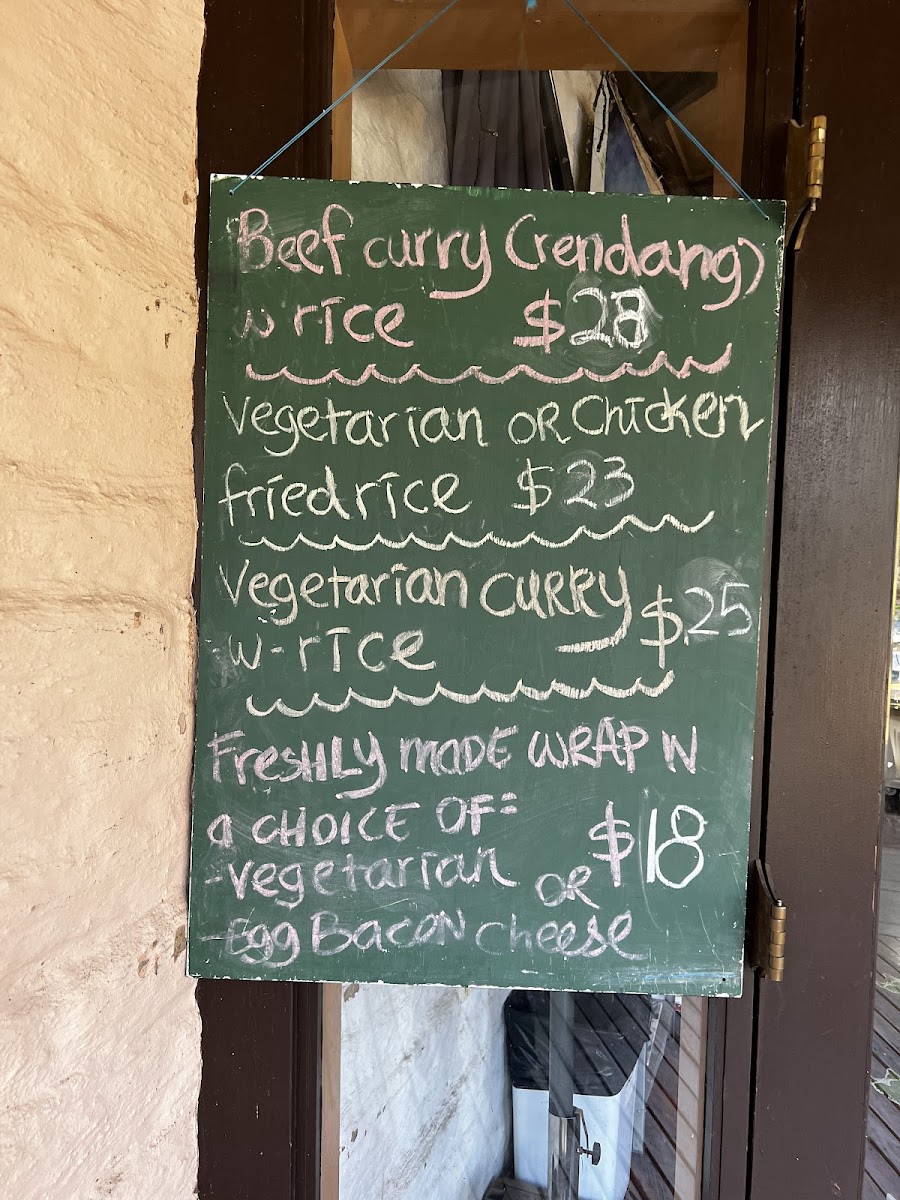 Beef curry (rendang)
w rice $28
Vegetarian OR Chicken
fried rice $23
Vegetarian CURRY $25
-w-rice
FresHLY MADE WRAP N
a CHOICE OF= $18
-vegetarian OR
-Egg BacoN cheese